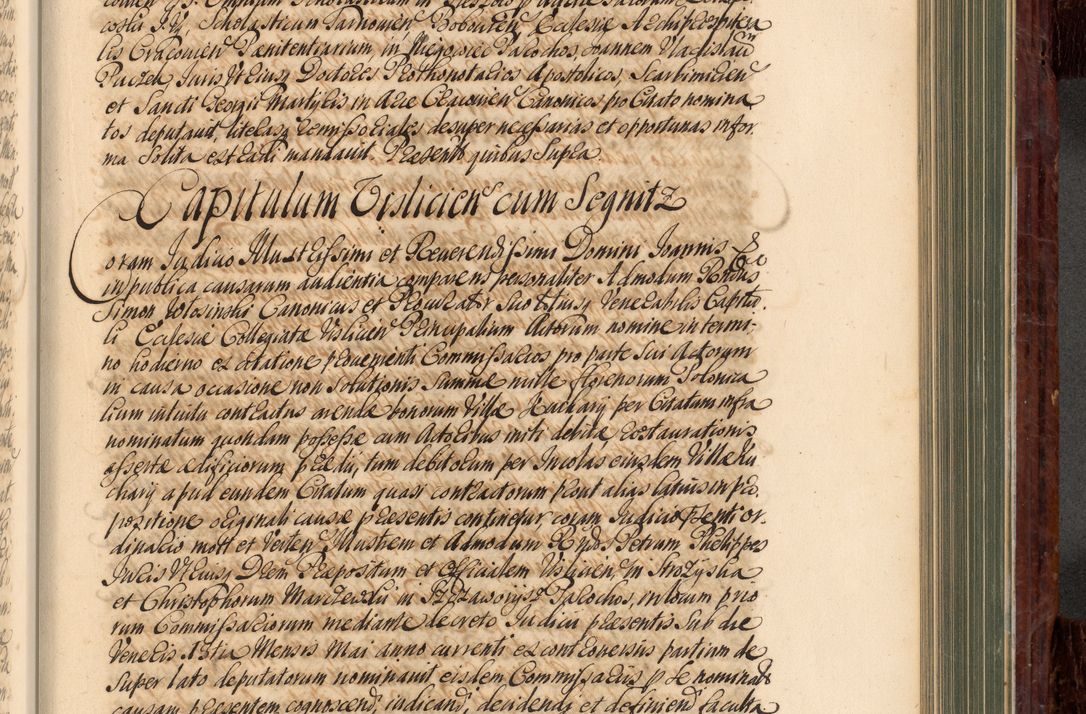 costii J. U. Scholasticum Tarnovien Bobovien Ecclesiæ Archipresbitea
lis Cracovien Pœnitentiarium in Parochos, Joannem Vladislaũ
Paczek Juris Utriusq Doctores Prothonotarios Apostolicos, Scarbimirien
et Sancti Georgii Martyris in Arce Cracovien Canonicos pro Citato nomina
tos deputavit, literasq remissoriales desuper necessarias et opportunas in for
ma solita extradi mandavit Præsentib quibus supra.
Capitulum Visliciens cum Segnitz
Coram Judicio Illustrissimi et Reverendissimi Domini Joannis
in publica causarum audientia comparens personaliter Admodum Rndus
Simon Canonicus et Procurator suo totiusq Venerabilis Capitu
li Ecclesiæ Collegiatæ Vislicien Principalium Actorum nomine in termi-
no hodierno ex citatione provenienti Commissarios pro parte sui Actorum
in causa occasione non solutionis summæ mille florenorum Polonica
lium intuitu contractus arendæ bonorum Villæ Kuchary per Citatum infra
nominatum quondam possessæ cum Actoribus initi debitæ restaurationis
assertæ ædificiorum prædii, tum debitorum per Incolas eiusdem Villæ Ku
chary apud eundem Citatum quasi contractorum prout alias latius in pro
positione originali causæ præsentis continetur, coram Judicio præsenti or-
dinario mott et verten Illustrem et Admodum Rndos Petrum Philippes
Juris Utriusq Drem Præpositum et Officialem Vislicien, in Strozyska
et Christophorum Marczewski in Parochos, in locum prio
rum Commissariorum mediante decreto Judicii præsentis sub die
Veneris Mensis Maii anno currenti ex controversiis partium de
super lato deputatorum nominavit eisdem Commissariis præ nominatis
causam præsentem cognoscend, iudicand, decidendi et definiend faculta